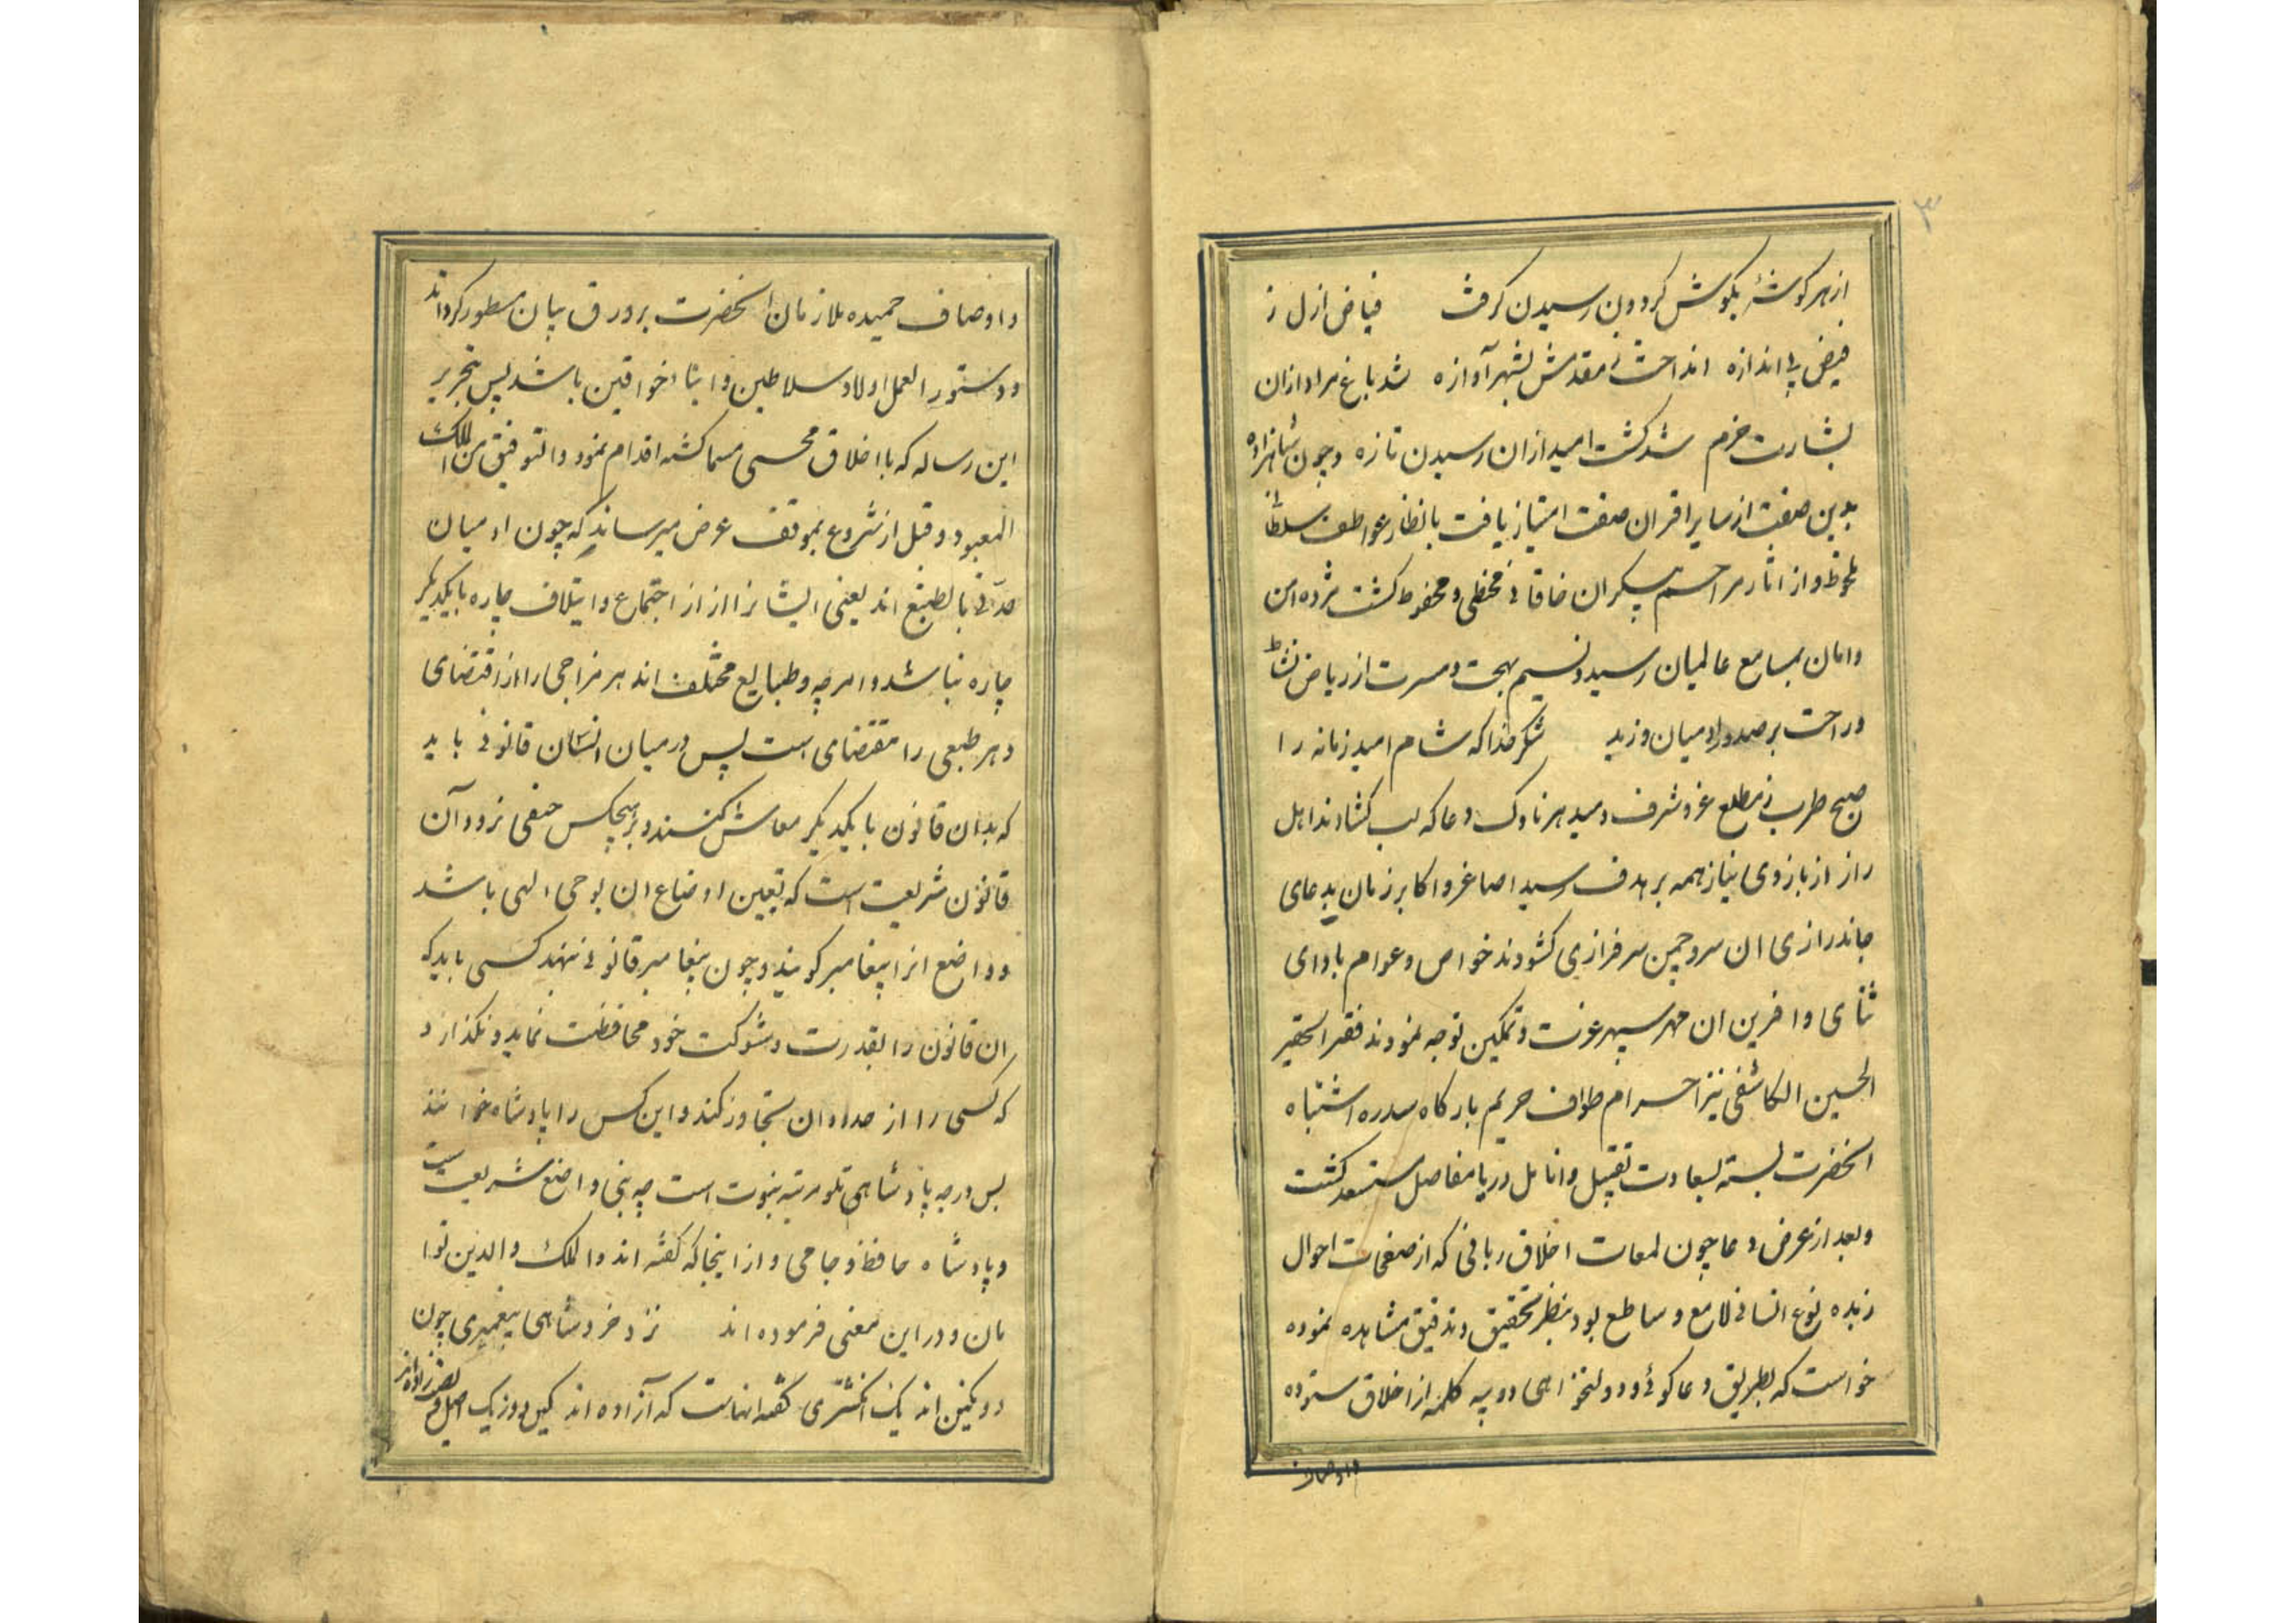 ۳
از هر کوشهٔ بکوش کردون رسیدن کرفت فیاض ازل ز
فیض بی اندازه انداخت ز مقدمش بشهر آوازه شد باغ مراد ازان
بشارت خرم شد کشت امید ازان رسیدن تازه و چون شاهزاده
بدین صفت از سایر اقران صفت امتیاز یافت بانظار عواطف سلطانی
ملحوظ و از اثار مراحم بیکران خاقانی محظی و محفوظ کشت مژده امن
و امان بمسامع عالمیان رسید و نسیم بهجت و مسرت از ریاض نشاط
و راحت بر صدور ادمیان وزید شکر خدا که شام امید زمانه را
صبح طرب ز مطلع عز و شرف دمید هر ناوک دعا که لب کشادند اهل
راز از بازوی نیاز همه بر هدف رسید اصاغر و اکابر زمان بدعای
جاندرازی ان سرو چمن سرفرازی کشودند خواص و عوام بادای
ثنای و افرین ان مهر سپهر عزت و تمکین توجه نمودند فقیر الحقیر
الحسین الکاشفی نیز احرام طواف حریم بارکاه سدره اشتباه
انحضرت بسته بسعادت تقبیل و انامل دریا مفاصل مستسعد کشت
و بعد از عرض دعا چون لمعات اخلاق ربانی که از صفحات احوال
زبده نوع انسانی لامع و ساطع بود بنظر تحقیق و تدقیق مشاهده نموده
خواست که بطریق دعا کوئی و دولتخواهی دو سه کلمه از اخلاق ستوده
و اوصاف
و اوصاف حمیده ملازمان انحضرت بر ورق بیان مسطور کرداند
و دستور العمل اولاد سلاطین و ابناء خواقین باشد پس بتحریر
این رساله که با اخلاق محسنی مسما کشته اقدام نمود و التوفیق من الملک
المعبود و قبل از شروع بموقف عرض میرساند که چون ادمیان
مدنی بالطبع اند یعنی ایشانرا از از اجتماع و ایتلاف چاره با یکدیکر
چاره نباشد و امرچه و طبایع مختلف اند هر مزاجی را از اقتضای
و هر طبعی را مقتضای است پس درمیان انسان قانونی باید
که بدان قانون با یکدیکر معاش کنند و بر هیچکس حیفی نرود آن
قانون شریعت است که تعین اوضاع ان بوحی الهی باشد
و واضع انرا پیغامبر کویند و چون پیغامبر قانونی نهد کسی باید که
ان قانون را بقدرت و شوکت خود محافظت نماید و نکذارد
که کسی را از حدود ان تجاوز کند و این کس را پادشاه خوانند
بس درجه پادشاهی تلو مرتبه نبوت است چه نبی واضع شریعت است
و پادشاه حافظ و حامی و از اینجا که کفته اند و الملک و الدین توا
مان و در این معنی فرموده اند نزد خرد شاهی پیغمبری چون
دو نکین اند یک انکشتری کفته انهاست که آزاده اند کین دو ز یک اصل و نسب زاده اند